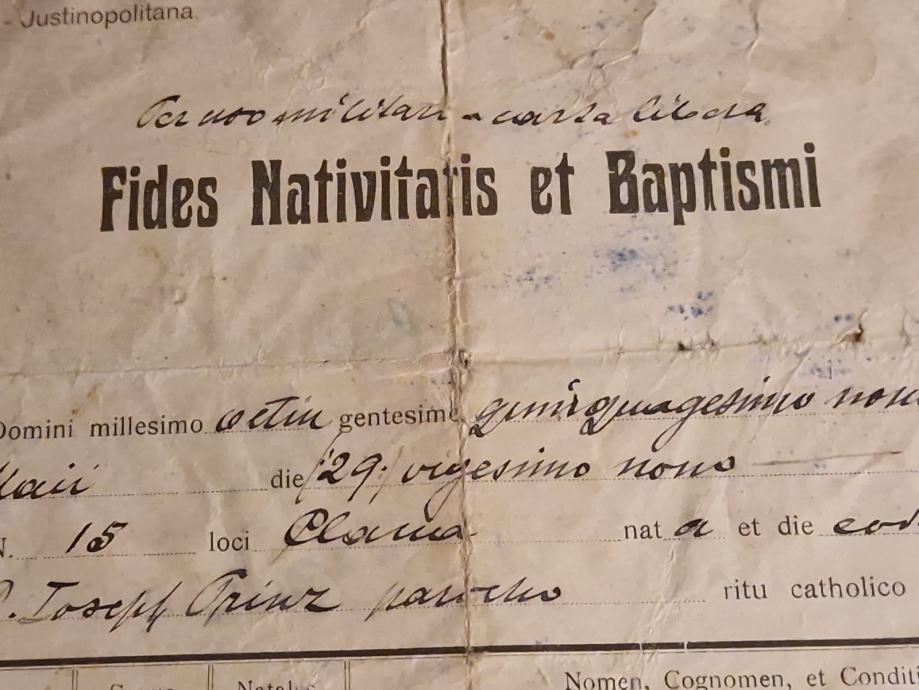 - Justinopolitana
Per uso militare - carta libera
Fides Nativitatis et Baptismi
Domini millesimo octin gentesimo quinquagesimo nono
Maii die /29:/ vigesimo nono
N. 15 loci nat a et die eod
D. Joseph Prinz parocho ritu catholico
Natales Nomen, Cognomen, et Conditi